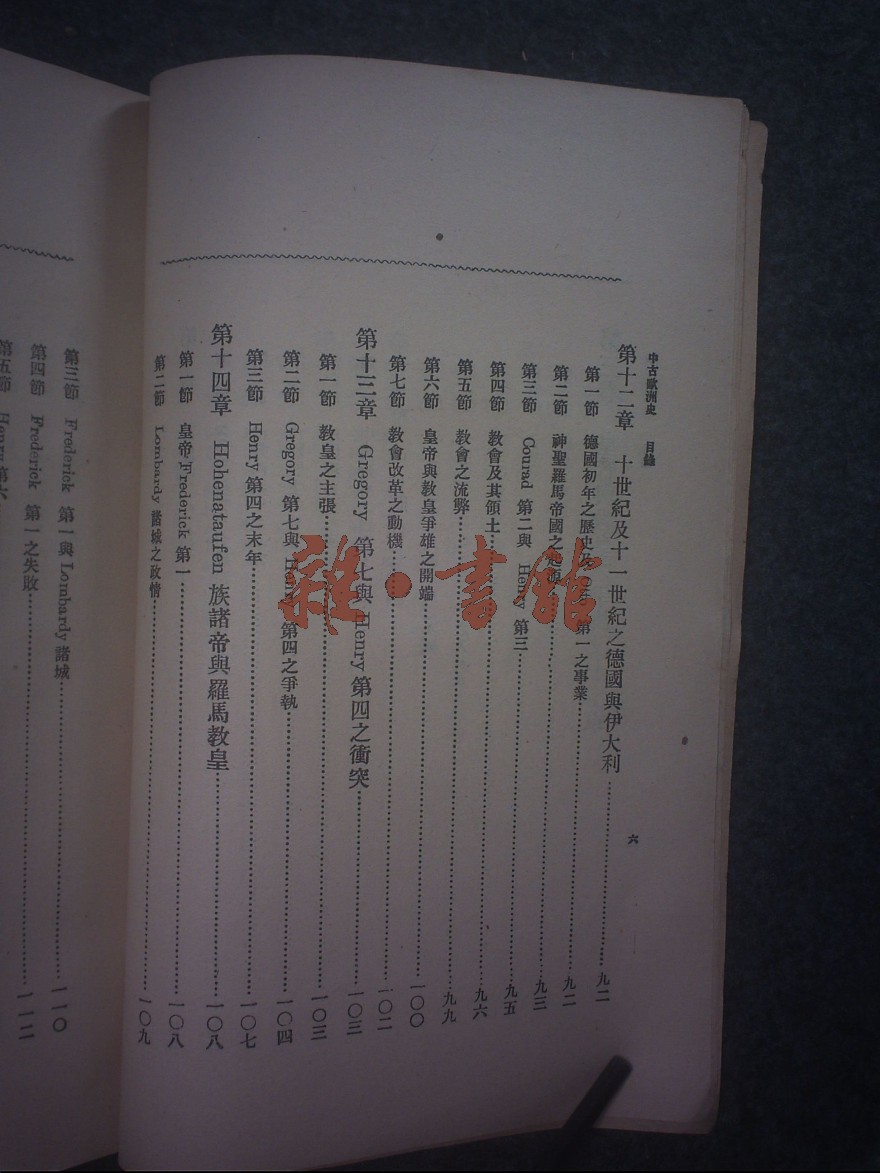 中古歐洲史 目錄
六
第十二章 十世紀及十一世紀之德國與伊大利 九二
第一節 德國初年之歷史及 第一之事業 九二
第二節 神聖羅馬帝國之起源 九三
第三節 Courad 第二與 Henry 第三 九五
第四節 教會及其領土 九六
第五節 教會之流弊 九九
第六節 皇帝與教皇爭雄之開端 一〇〇
第七節 教會改革之動機 一〇二
第十三章 Gregory 第七與 Henry 第四之衝突 一〇三
第一節 教皇之主張 一〇三
第二節 Gregory 第七與 Henry 第四之爭執 一〇四
第三節 Henry 第四之末年 一〇七
第十四章 Hohenataufen 族諸帝與羅馬教皇 一〇八
第一節 皇帝 Frederick 第一 一〇八
第二節 Lombardy 諸城之政情 一〇九
第三節 Frederick 第一與 Lombardy 諸城 一一〇
第四節 Frederick 第一之失敗 一一二
第五節 Henry 第六
雜·書館